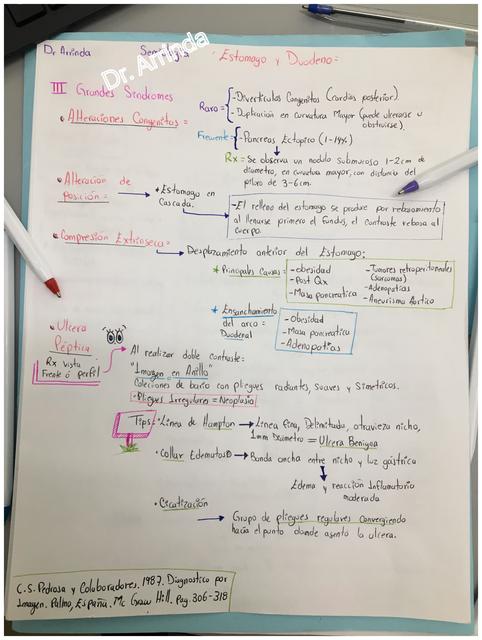 Dr Arrinda Semiología Estomago y Duodeno=
Dr. Arrinda
III Grandes Sindromes
• Alteraciones Congenitas =
Raro = - Diverticulos Congenitos (Cardias posterior).
- Duplicación en curvatura Mayor (puede ulcerarse u
obstruirse).
Frecuente = - Pancreas Ectopico (1-14%)
Rx = Se observa un nodulo Submucoso 1-2cm de
diametro, en curvatura mayor, con distancia del
piloro de 3-6cm.
• Alteracion de
posición =
* Estomago en
Cascada.
- El relleno del estomago se produce por rebosamiento
al llenarse primero el fundus, el contraste rebosa al
cuerpo.
• Compresión Extrinseca =
Desplazamiento anterior del Estomago:
* Principales Causas =
- obesidad
- Post Qx
- Masa pancreatica
- Tumores retroperitoneales
(Sarcomas)
- Adenopatias
- Aneurisma Aortico
* Ensanchamiento
del arco =
Duodenal
- Obesidad
- Masa pancreatica
- Adenopatias
• Ulcera
Péptica
Rx vista
Frente ó perfil
Al realizar doble contraste:
"Imagen en Anillo"
Colecciones de bario con pliegues radiantes, suaves y Simetricos.
• Pliegues Irregulares = Neoplasia
Tips:
• Linea de Hampton → Linea fina, Delimitada, atraviesa nicho,
1mm Diametro = Ulcera Benigna
• Collar Edematoso → Banda ancha entre nicho y luz gástrica
Edema y reacción Inflamatoria
moderada
• Cicatización
Grupo de pliegues regulares convergiendo
hacia el punto donde asentó la ulcera.
C.S. Pedrosa y Colaboradores. 1987. Diagnostico por
Imagen. Palma, España. Mc Graw Hill. Pag. 306-318